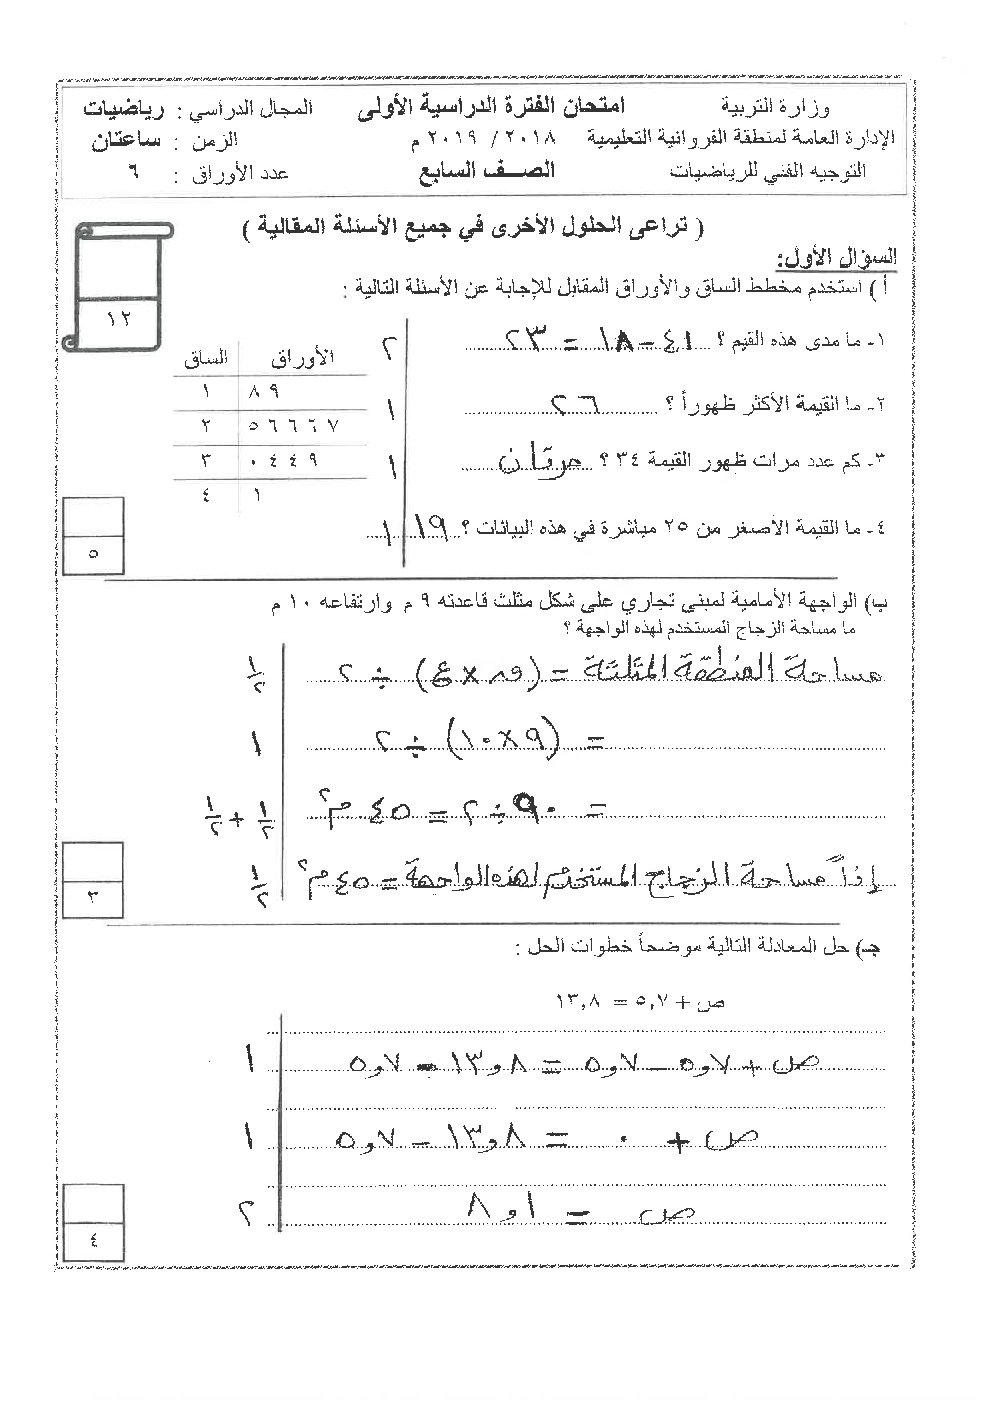 وزارة التربية
الإدارة العامة لمنطقة الفروانية التعليمية
التوجيه الفني للرياضيات
امتحان الفترة الدراسية الأولى
٢٠١٨ / ٢٠١٩ م
الصف السابع
المجال الدراسي : رياضيات
الزمن : ساعتان
عدد الأوراق : ٦
( تراعى الحلول الأخرى في جميع الأسئلة المقالية )
١٢
السؤال الأول:
أ ) استخدم مخطط الساق والأوراق المقابل للإجابة عن الأسئلة التالية :
١- ما مدى هذه القيم ؟ ٤١ – ١٨ = ٢٣
٢
٢- ما القيمة الأكثر ظهوراً ؟ ٢٦
١
٣- كم عدد مرات ظهور القيمة ٣٤ ؟ مرتان
١
٤- ما القيمة الأصغر من ٢٥ مباشرة في هذه البيانات ؟ ١٩
١
الساق الأوراق
١ ٨ ٩
٢ ٥ ٦ ٦ ٦ ٧
٣ ٠ ٤ ٤ ٩
٤ ١
٥
ب) الواجهة الأمامية لمبنى تجاري على شكل مثلث قاعدته ٩ م وارتفاعه ١٠ م
ما مساحة الزجاج المستخدم لهذه الواجهة ؟
مساحة المنطقة المثلثة = (ق × ع) ÷ ٢
١/٢
= (٩ × ١٠) ÷ ٢
١
= ٩٠ ÷ ٢ = ٤٥ م٢
١/٢ + ١/٢
إذاً مساحة الزجاج المستخدم لهذه الواجهة = ٤٥ م٢
١/٢
٣
جـ) حل المعادلة التالية موضحاً خطوات الحل :
ص + ٥,٧ = ١٣,٨
ص + ٥,٧ – ٥,٧ = ١٣,٨ – ٥,٧
١
ص + ٠ = ١٣,٨ – ٥,٧
١
ص = ٨,١
٢
٤